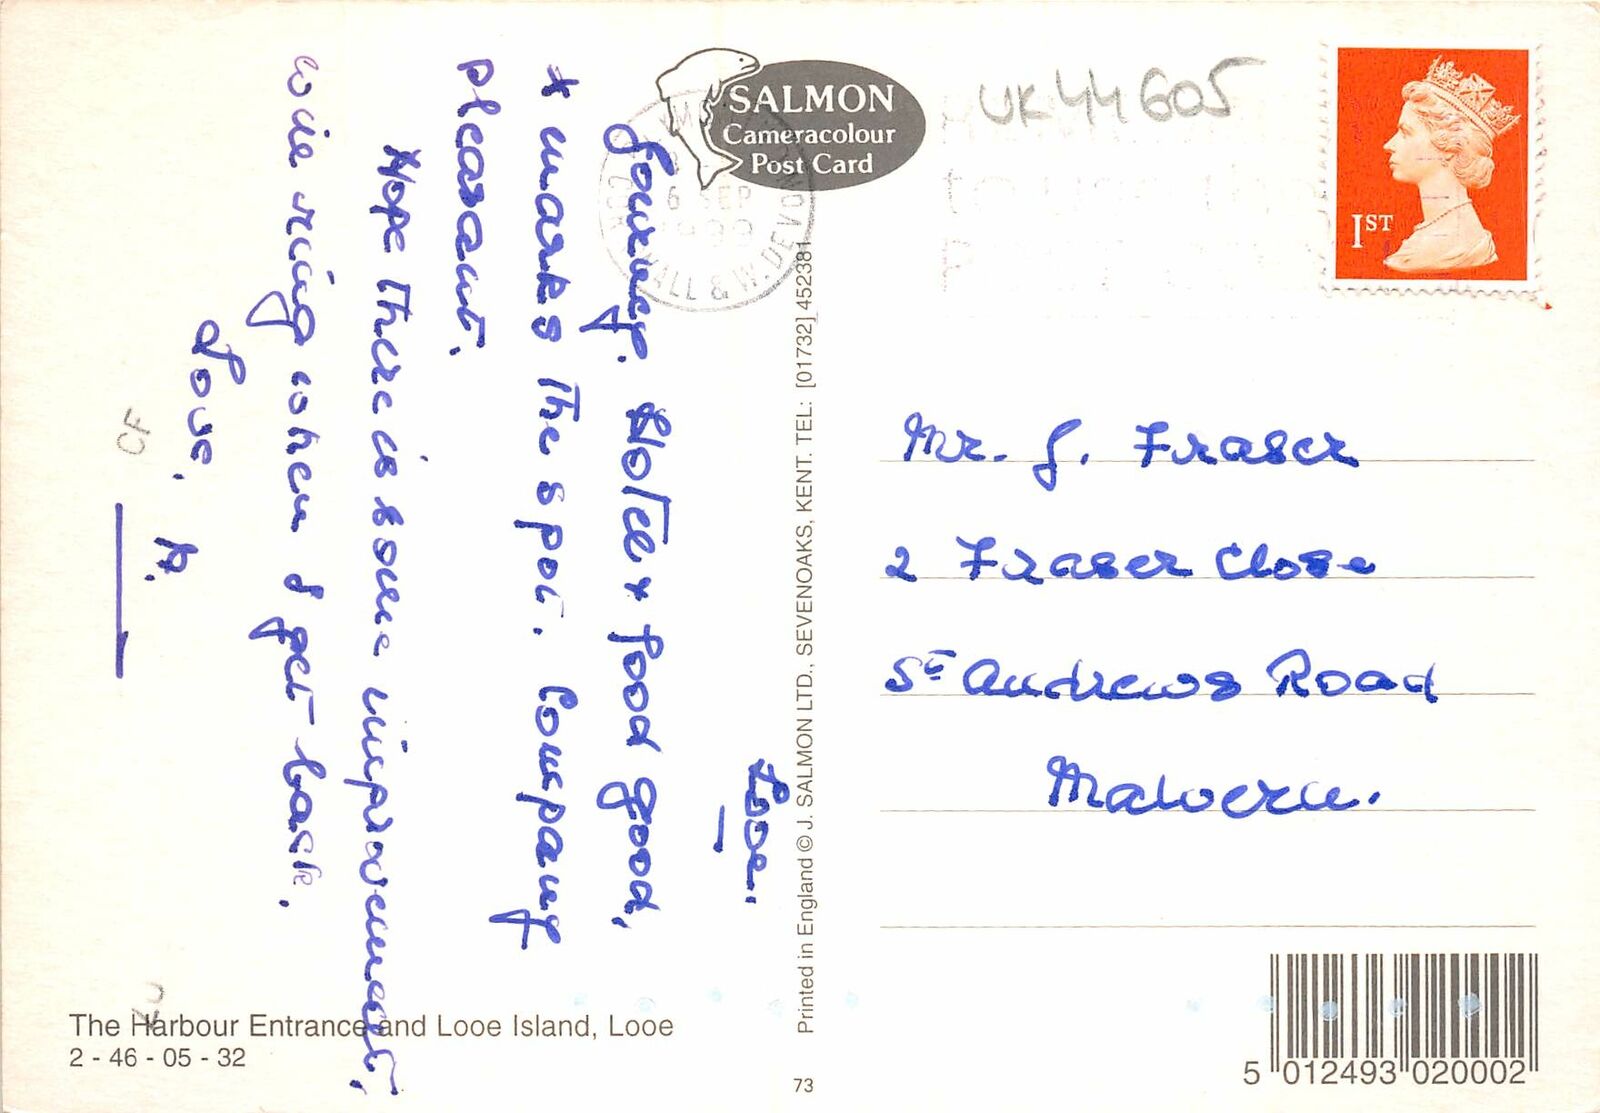 SALMON
Cameracolour
Post Card
UK44605
1ST
6 SEP
1999
ALL & W. DEVON
Looe.
Hotel + food good,
+ marks the spot. Company
pleasant.
Hope there is some improvement,
will ring when I get back.
Love,
A.
CF
Mr. J. Fraser
2 Fraser Close
St Andrews Road
Malvern.
Printed in England © J. SALMON LTD., SEVENOAKS, KENT. TEL: [01732] 452381
The Harbour Entrance and Looe Island, Looe
2 - 46 - 05 - 32
73
5 012493 020002